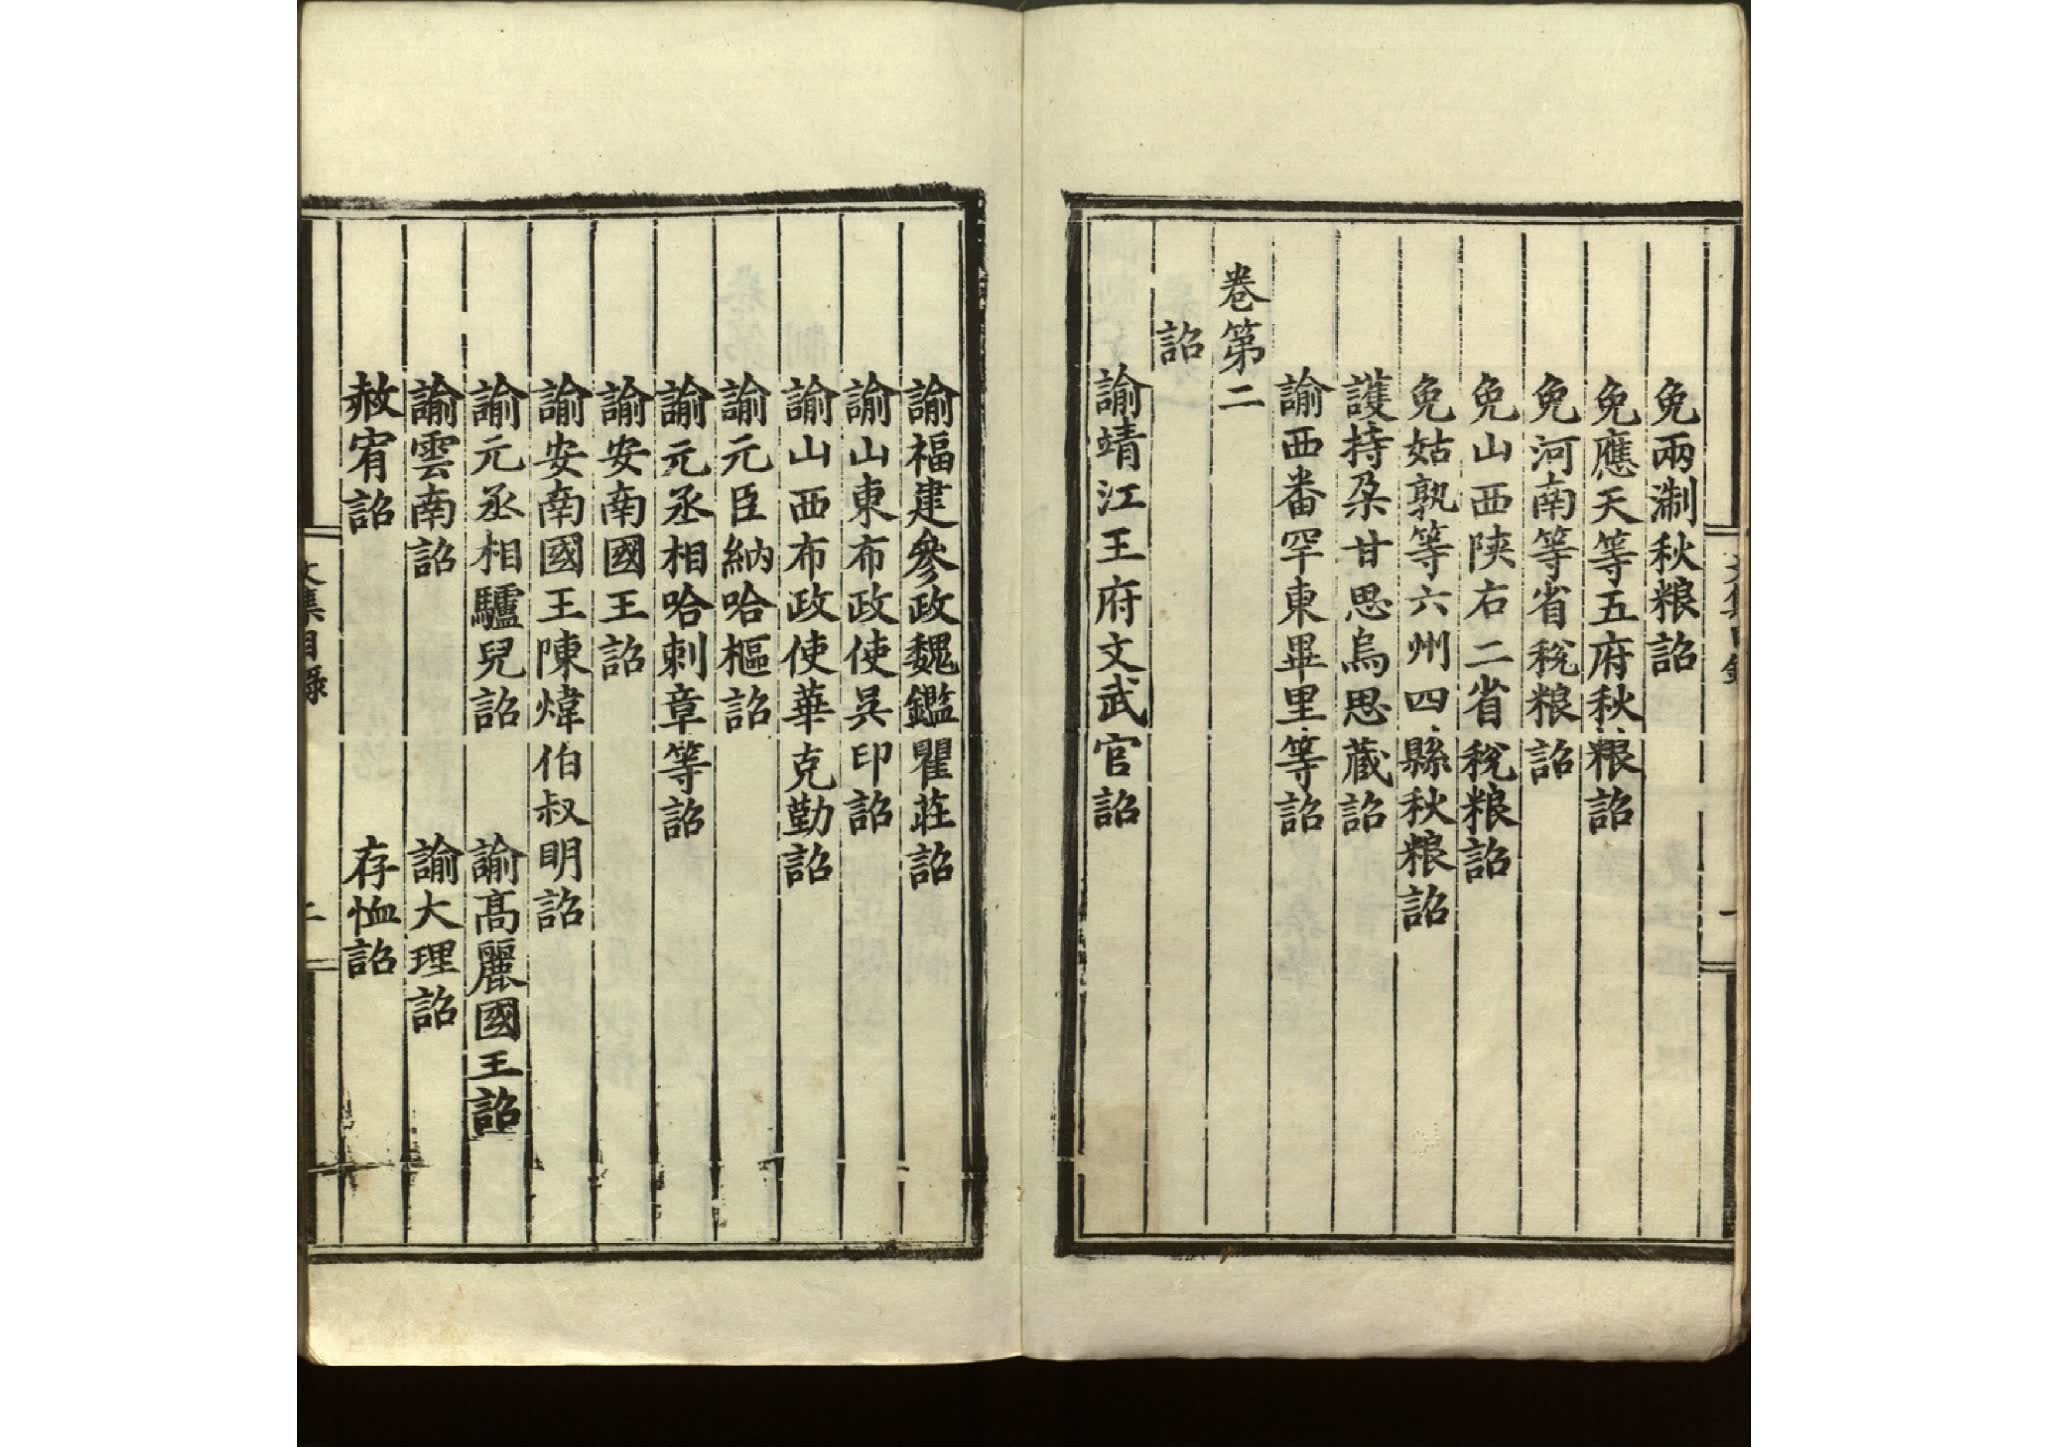 免兩淛秋粮詔
免應天等五府秋粮詔
免河南等省稅粮詔
免山西陝右二省稅粮詔
免姑孰等六州四縣秋粮詔
護持朶甘思烏思藏詔
諭西番罕東畢里等詔
卷第二
詔
諭靖江王府文武官詔
諭福建叅政魏鑑瞿莊詔
諭山東布政使吳印詔
諭山西布政使華克勤詔
諭元臣納哈樞詔
諭元丞相哈剌章等詔
諭安南國王詔
諭安南國王陳煒伯叔明詔
諭元丞相驢兒詔　諭髙麗國王詔
諭雲南詔　諭大理詔
赦宥詔　存恤詔
文集目錄
二